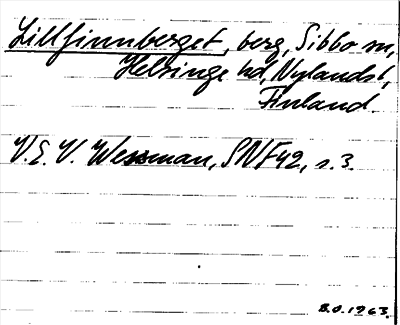 Lillfinnberget, berg, Sibbo sn,
Helsinge hd, Nylands l,
Finland.
V.E.V. Wessman, SNF 42, s. 3.
B.O. 1963.